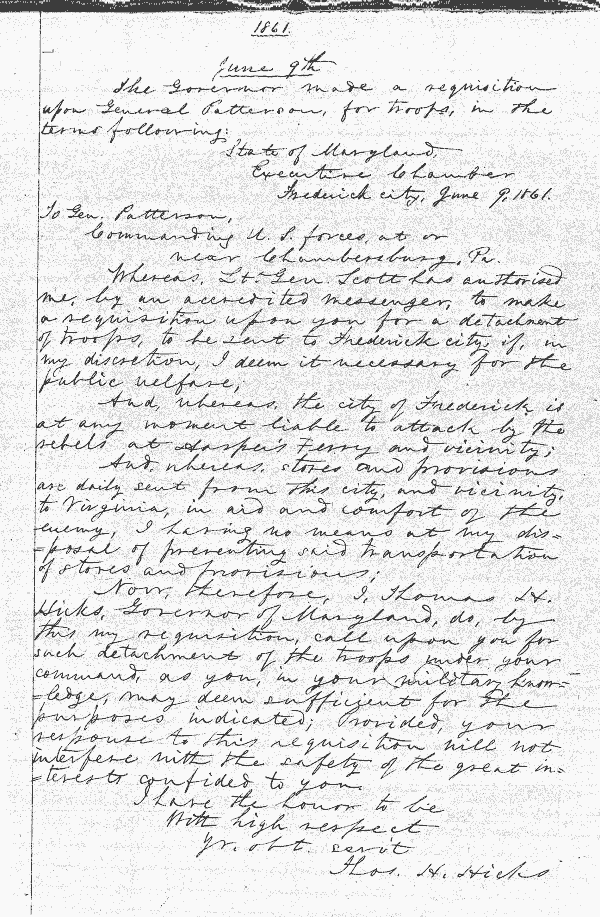 1861.
June 9th
The Governor made a requisition
upon General Patterson, for troops, in the
terms following:
State of Maryland,
Executive Chamber
Frederick city, June 9, 1861.
To Gen. Patterson,
Commanding U. S. forces, at or
near Chambersburg, Pa.
Whereas, Lt. Gen. Scott has authorised
me, by an accredited messenger, to make
a requisition upon you for a detachment
of troops, to be sent to Frederick city, if, in
my discretion, I deem it necessary for the
public welfare;
And, whereas, the city of Frederick is
at any moment liable to attack by the
rebels at Harper's Ferry and vicinity;
And, whereas, stores and provisions
are daily sent from this city, and vicinity,
to Virginia, in aid and comfort of the
enemy, I having no means at my dis=
=posal of preventing said transportation
of stores and provisions;
Now, therefore, I, Thomas H.
Hicks, Governor of Maryland, do, by
this my requisition, call upon you for
such detachment of the troops under your
command, as you, in your military know=
=ledge, may deem sufficient for the
purposes indicated; Provided, your
response to this requisition will not
interfere with the safety of the great in=
=terests confided to you.
I have the honor to be
With high respect
Yr. obt. servt
Thos. H. Hicks